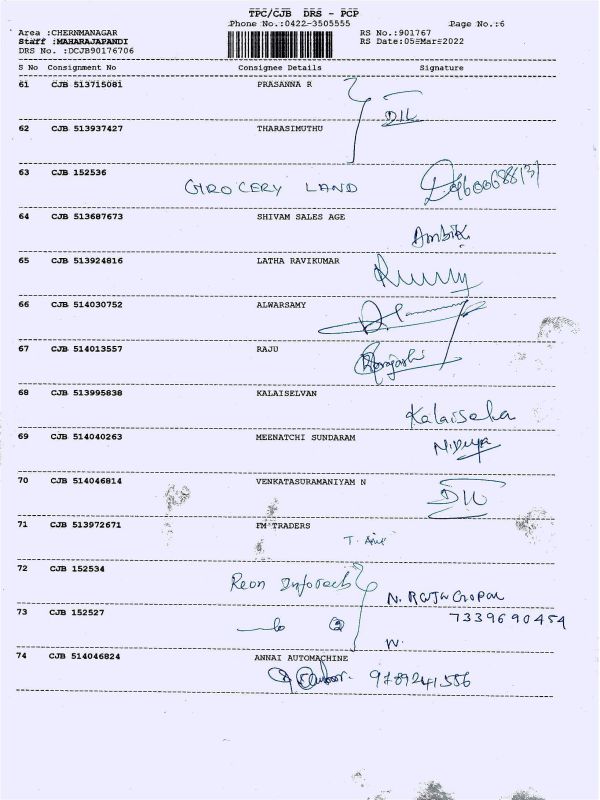 TPC/CJB DRS - PCP
Phone No.:0422-3505555 Page No.:6
Area :CHERNMANAGAR RS No.:901767
Staff :MAHARAJAPANDI RS Date:05-Mar-2022
DRS No. :DCJB90176706
S No Consignment No Consignee Details Signature
61 CJB 513715081 PRASANNA R
D/L
62 CJB 513937427 THARASIMUTHU
63 CJB 152536
GROCERY LAND
64 CJB 513687673 SHIVAM SALES AGE
Ambik
65 CJB 513924816 LATHA RAVIKUMAR
66 CJB 514030752 ALWARSAMY
67 CJB 514013557 RAJU
68 CJB 513995838 KALAISELVAN
69 CJB 514040263 MEENATCHI SUNDARAM
70 CJB 514046814 VENKATASURAMANIYAM N
D/L
71 CJB 513972671 FM TRADERS
72 CJB 152534
Reon Infotech
N. RAJA GOPAL
73 CJB 152527 7339690454
74 CJB 514046824 ANNAI AUTOMACHINE
9789241556